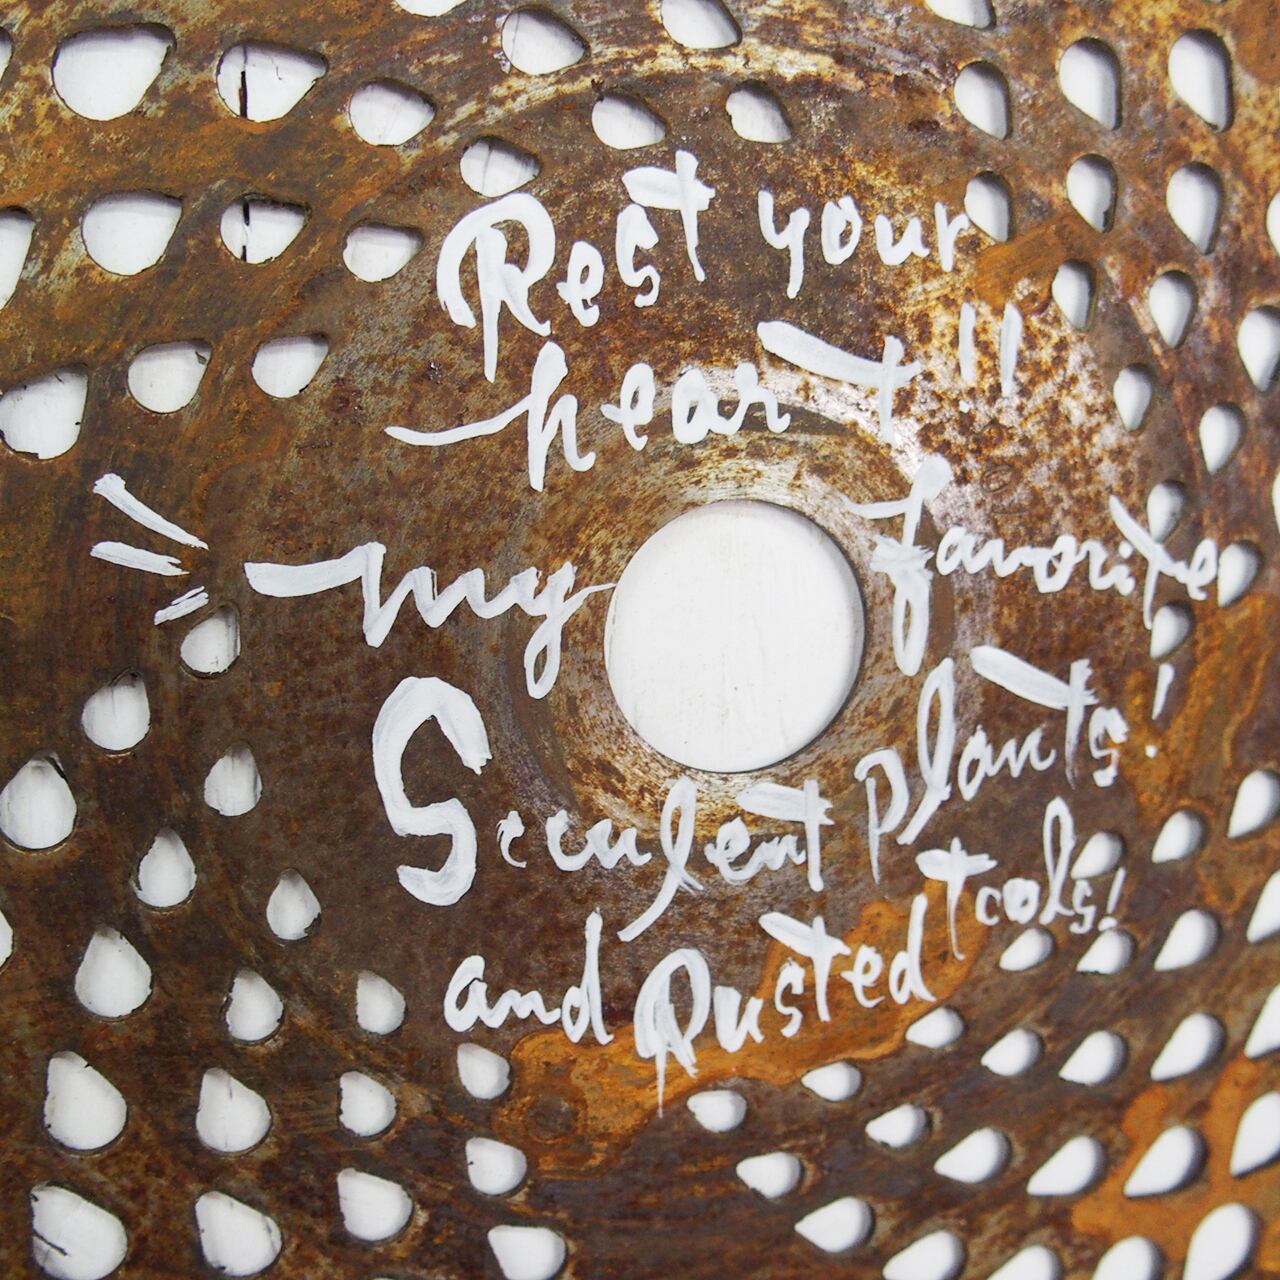 Rest your
heart!!
my favorite
Succulent plants!
and Rusted tools!